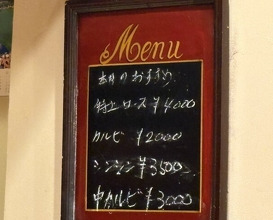 Menu
本日のおすすめ
特上ロース ¥4000
カルビ ¥2000
シンシン ¥3500
中カルビ ¥3000